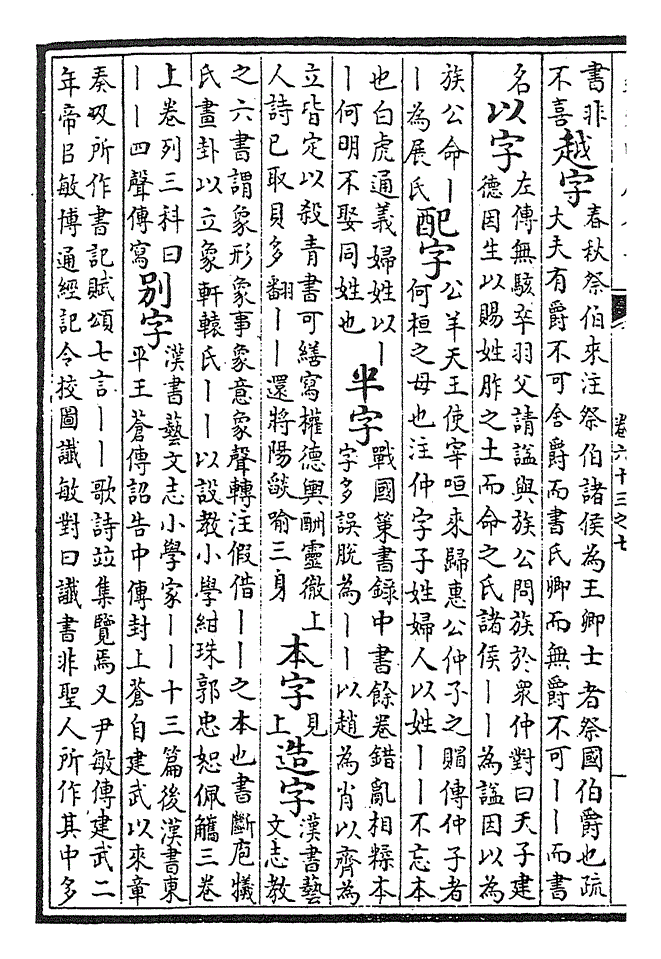 書非
不喜
越字
春秋祭伯來注祭伯諸侯為王卿士者祭國伯爵也疏
大夫有爵不可舍爵而書氏卿而無爵不可丨丨而書
名
以字
左傳無駭卒羽父請諡與族公問族於衆仲對曰天子建
德因生以賜姓胙之土而命之氏諸侯丨丨為諡因以為
族公命丨
丨為展氏
配字
公羊天王使宰咺來歸惠公仲子之賵傳仲子者
何桓之母也注仲字子姓婦人以姓丨丨不忘本
也白虎通義婦姓以丨
丨何明不娶同姓也
半字
戰國策書錄中書餘卷錯亂相糅本
字多誤脫為丨丨以趙為肖以齊為
立皆定以殺青書可繕寫權德輿酬靈徹上
人詩已取貝多翻丨丨還將陽燄喻三身
本字
見
上
造字
漢書藝
文志教
之六書謂象形象事象意象聲轉注假借丨丨之本也書斷庖犧
氏畫卦以立象軒轅氏丨丨以設教小學紺珠郭忠恕佩觿三卷
上卷列三科曰
丨丨四聲傳寫
別字
漢書藝文志小學家丨丨十三篇後漢書東
平王蒼傳詔告中傳封上蒼自建武以來章
奏及所作書記賦頌七言丨丨歌詩竝集覽焉又尹敏傳建武二
年帝以敏博通經記令校圖讖敏對曰讖書非聖人所作其中多
卷六十三之七